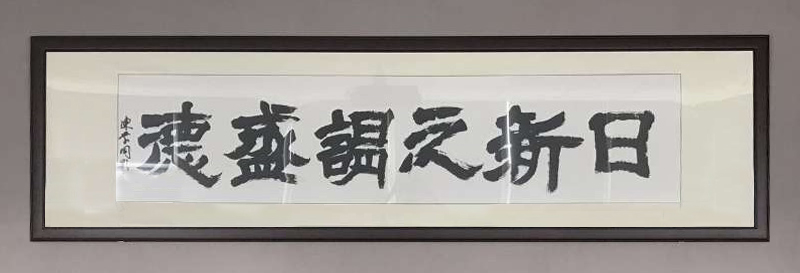 日新之謂盛德